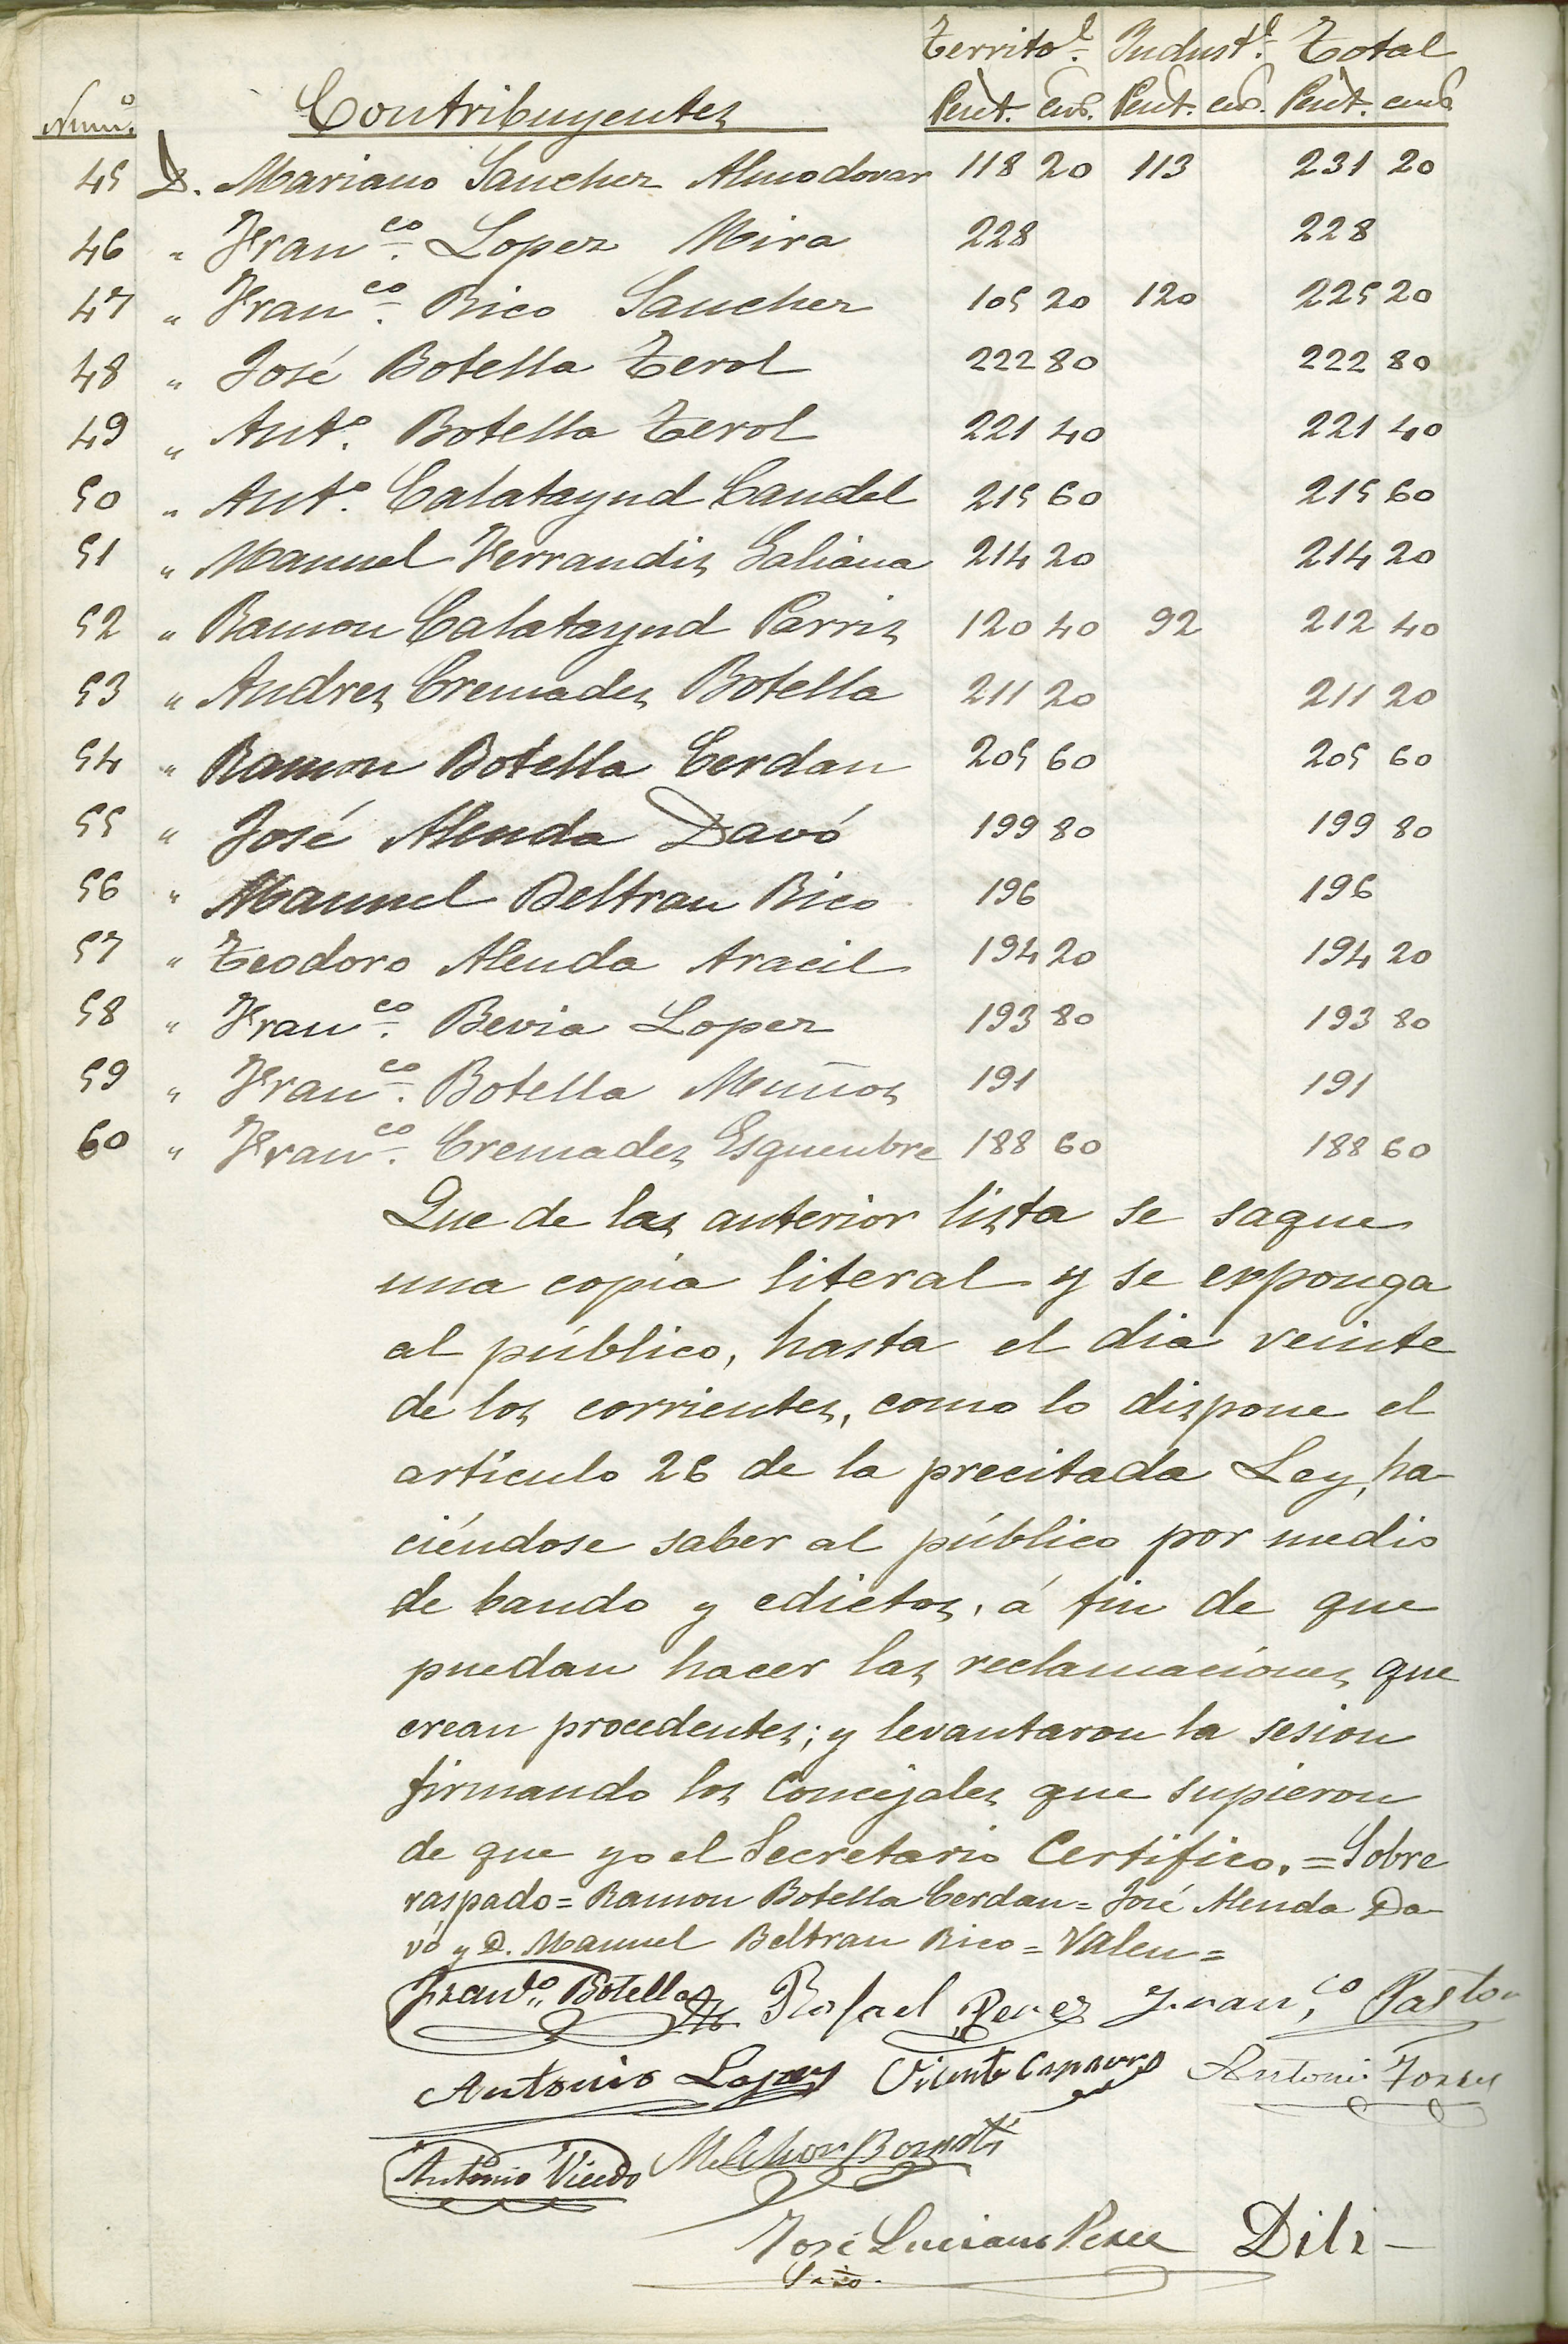 Territol. Industl. Total
Numo. Contribuyentes Peset. cents. Peset. cents. Peset. cents
45 D. Mariano Sanchez Almodovar 118 20 113 231 20
46 " Franco. Lopez Mira 228 228
47 " Franco. Rico Sanchez 105 20 120 225 20
48 " José Botella Terol 222 80 222 80
49 " Anto. Botella Terol 221 40 221 40
50 " Anto. Calatayud Candel 215 60 215 60
51 " Manuel Ferrandis Galiana 214 20 214 20
52 " Ramon Calatayud Parris 120 40 92 212 40
53 " Andres Cremades Botella 211 20 211 20
54 " Ramon Botella Cerdan 205 60 205 60
55 " José Alenda Davó 199 80 199 80
56 " Manuel Beltran Rico 196 196
57 " Teodoro Alenda Aracil 194 20 194 20
58 " Franco. Bevia Lopez 193 80 193 80
59 " Franco. Botella Muños 191 191
60 " Franco. Cremades Esquembre 188 60 188 60
Que de las anterior lista se saque
una copia literal y se exponga
al público, hasta el dia veinte
de los corrientes, como lo dispone el
artículo 26 de la precitada Ley, ha-
ciéndose saber al público por medio
de bando y edictos, á fin de que
puedan hacer las reclamaciones que
crean procedentes; y levantaron la sesion
firmando los Concejales que supieron
de que yo el Secretario Certifico. = Sobre
raspado = Ramon Botella Cerdan = José Alenda Da-
vó y D. Manuel Beltran Rico = Valen =
Franco. Botella Rafael Perez Franco. Pastor
Antonio Lopez Vicente Antonio Torres
Antonio Vicedo Melchor
José Luciano Perez Dili-
Srio.